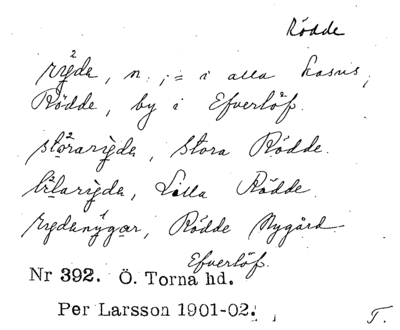 Rödde
ry̆de, n. ; = i alla kasus,
Rödde, by i Efverlöf.
störarìde, Stora Rödde.
lìlarìde, Lilla Rödde.
rydenýgar, Rödde Nygård
Efverlöf.
Nr 392. Ö. Torna hd.
Per Larsson 1901-02.
T.